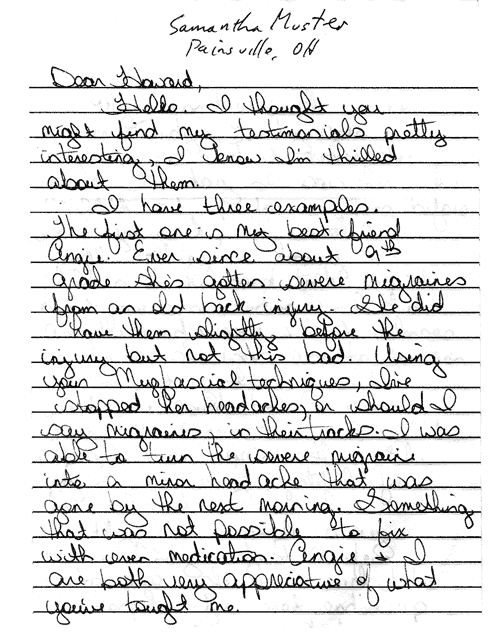 Samantha Muster
Painsville, OH
Dear Howard,
Hello. I thought you
might find my testimonials pretty
interesting, I know I'm thrilled
about them.
I have three examples.
The first one is my best friend
Angie. Ever since about 9th
grade she's gotten severe migraines
from an old back injury. She did
have them slightly before the
injury but not this bad. Using
your Myofascial techniques, I've
stopped her headaches, or should I
say migraines, in their tracks. I was
able to turn the severe migraine
into a minor headache that was
gone by the next morning. Something
that was not possible to fix
with even medication. Angie + I
are both very appreciative of what
you've taught me.